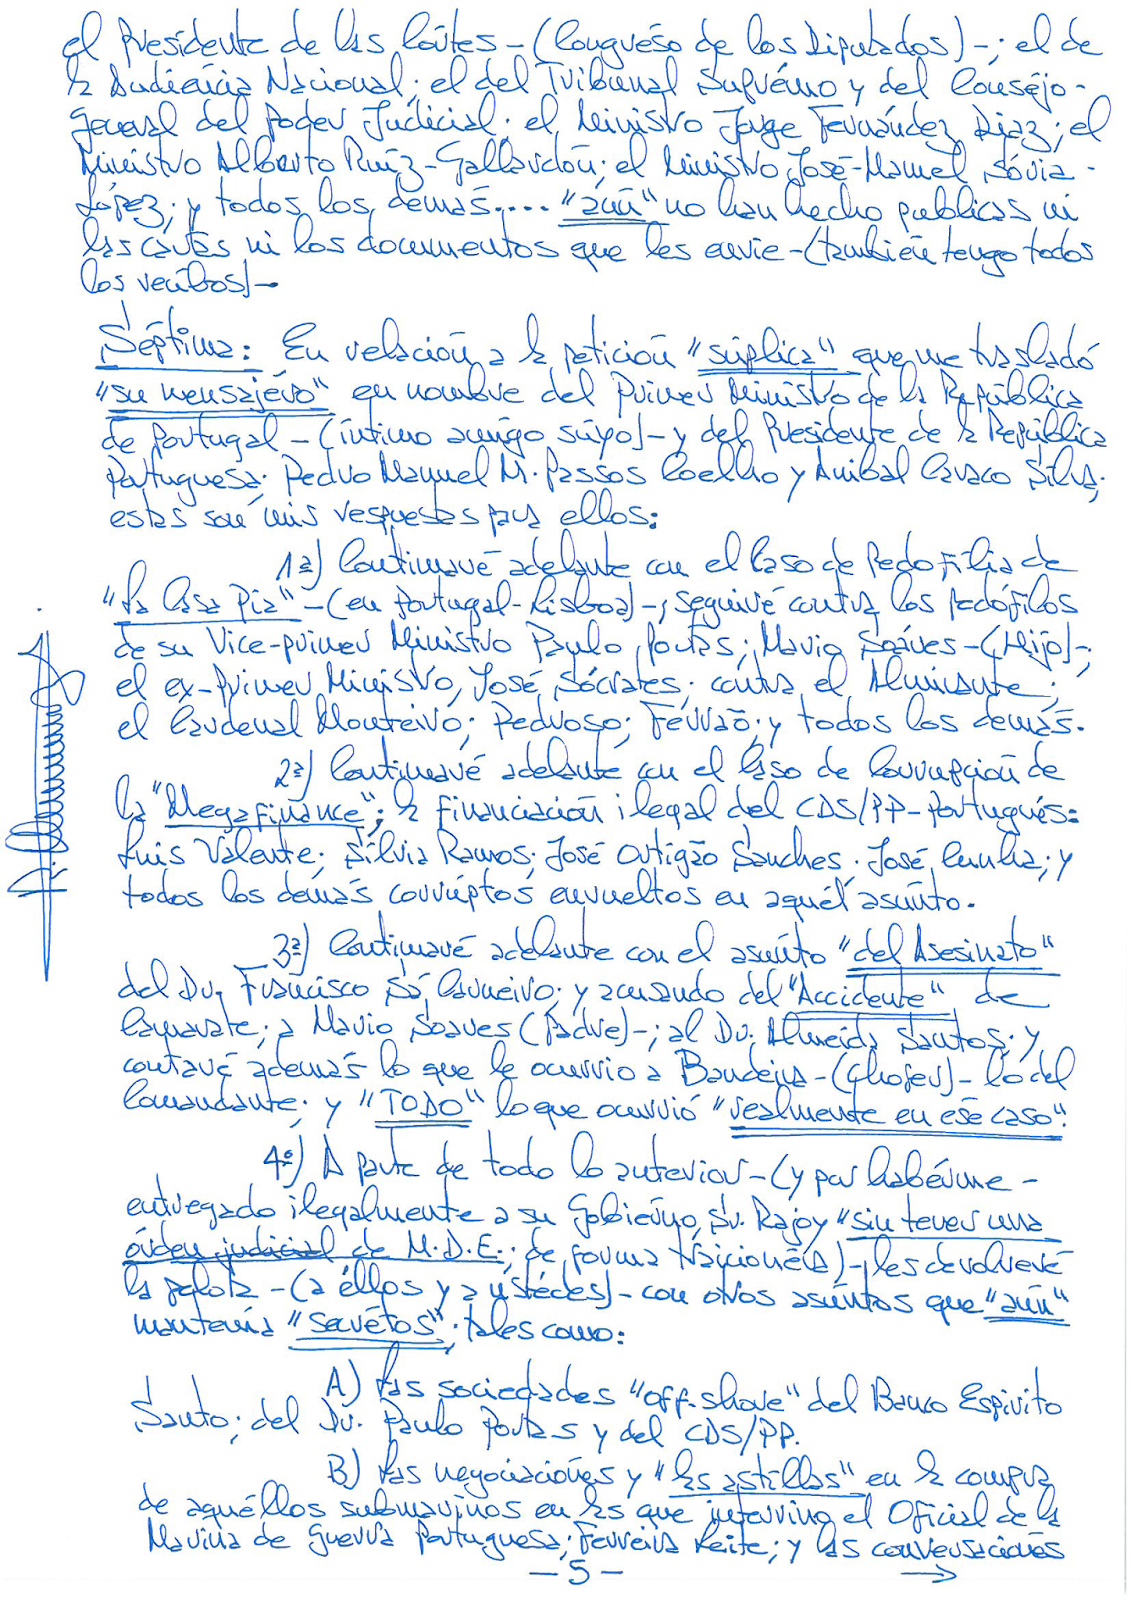 el Presidente de las Cortes-(Congreso de los Diputados)-; el de
la Audiencia Nacional; el del Tribunal Suprémo y del Conséjo-
General del Poder Judicial; el Ministro Jorge Fernández Diaz; el
Ministro Alberto Ruíz-Gallardón; el Ministro José-Manuel Sória-
López; y todos los demás.... "aún" no han hecho publicas ni
las cartas ni los documentos que les envie-(también tengo todos
los recibos)-
Séptima: En relación a la petición "súplica" que me trasladó
"su mensajéro" en nombre del Primer Ministro de la República
de Portugal-(íntimo amigo súyo)-y del Presidente de la República
Portuguesa; Pedro Manuel M. Passos Coelho y Anibal Cavaco Silva;
estas son mis respuestas para ellos:
1ª) Continuaré adelante con el Caso de Pedofilia de
"La Casa Pia"-(en Portugal-Lisboa)-; seguiré contra los pedófilos
de su Vice-primer Ministro Paulo Portas; Mario Soáres-(Hijo)-;
el ex-Primer Ministro, José Sócrates; contra el Almirante;
el Cardenal Monteiro; Pedroso; Ferraõ; y todos los demás.
2ª) Continuaré adelante con el Caso de Corrupción de
la "Megafinance"; la financiación ilegal del CDS/PP-Portugués:
Luis Valente; Sílvia Ramos; José Ortigão Sanches; José Cunha; y
todos los demás corrúptos envueltos en aquél asúnto.
3ª) Continuaré adelante con el asunto "del Asesinato"
del Dr. Francisco Sá Carneiro; y acusando del "Accidente" de
Camarate; a Mario Soares (Padre)-; al Dr. Almeida Santos; y
contaré además lo que le ocurrio a Bandeira-(Chofer)- lo del
Comandante; y "TODO" lo que ocurrió "realmente en ese caso".
4ª) A parte de todo lo anterior-(y por habérme-
entregado ilegalmente a su Gobierno, Sr. Rajoy "sin tener una
órden judicial de M.D.E.; de forma traicionéra)-, les devolveré
la pelota-(a éllos y a ustédes)-con otros asúntos que "aún"
mantenia "secrétos"; tales como:
A) Las sociedades "off-shore" del Banco Espirito
Santo; del Dr. Paulo Portas y del CDS/PP.
B) Las negociaciónes y "las astillas" en la compra
de aquéllos submarinos en las que intervino el Oficial de la
Marina de Guerra Portuguesa; Ferreira Leite; y las conversaciones
-5-